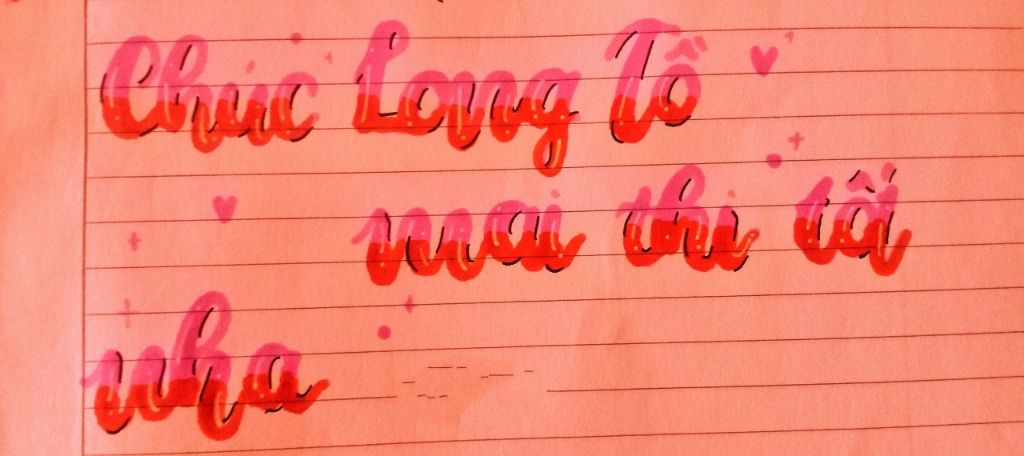 Chúc Long Tồ
mai thi tốt
nha